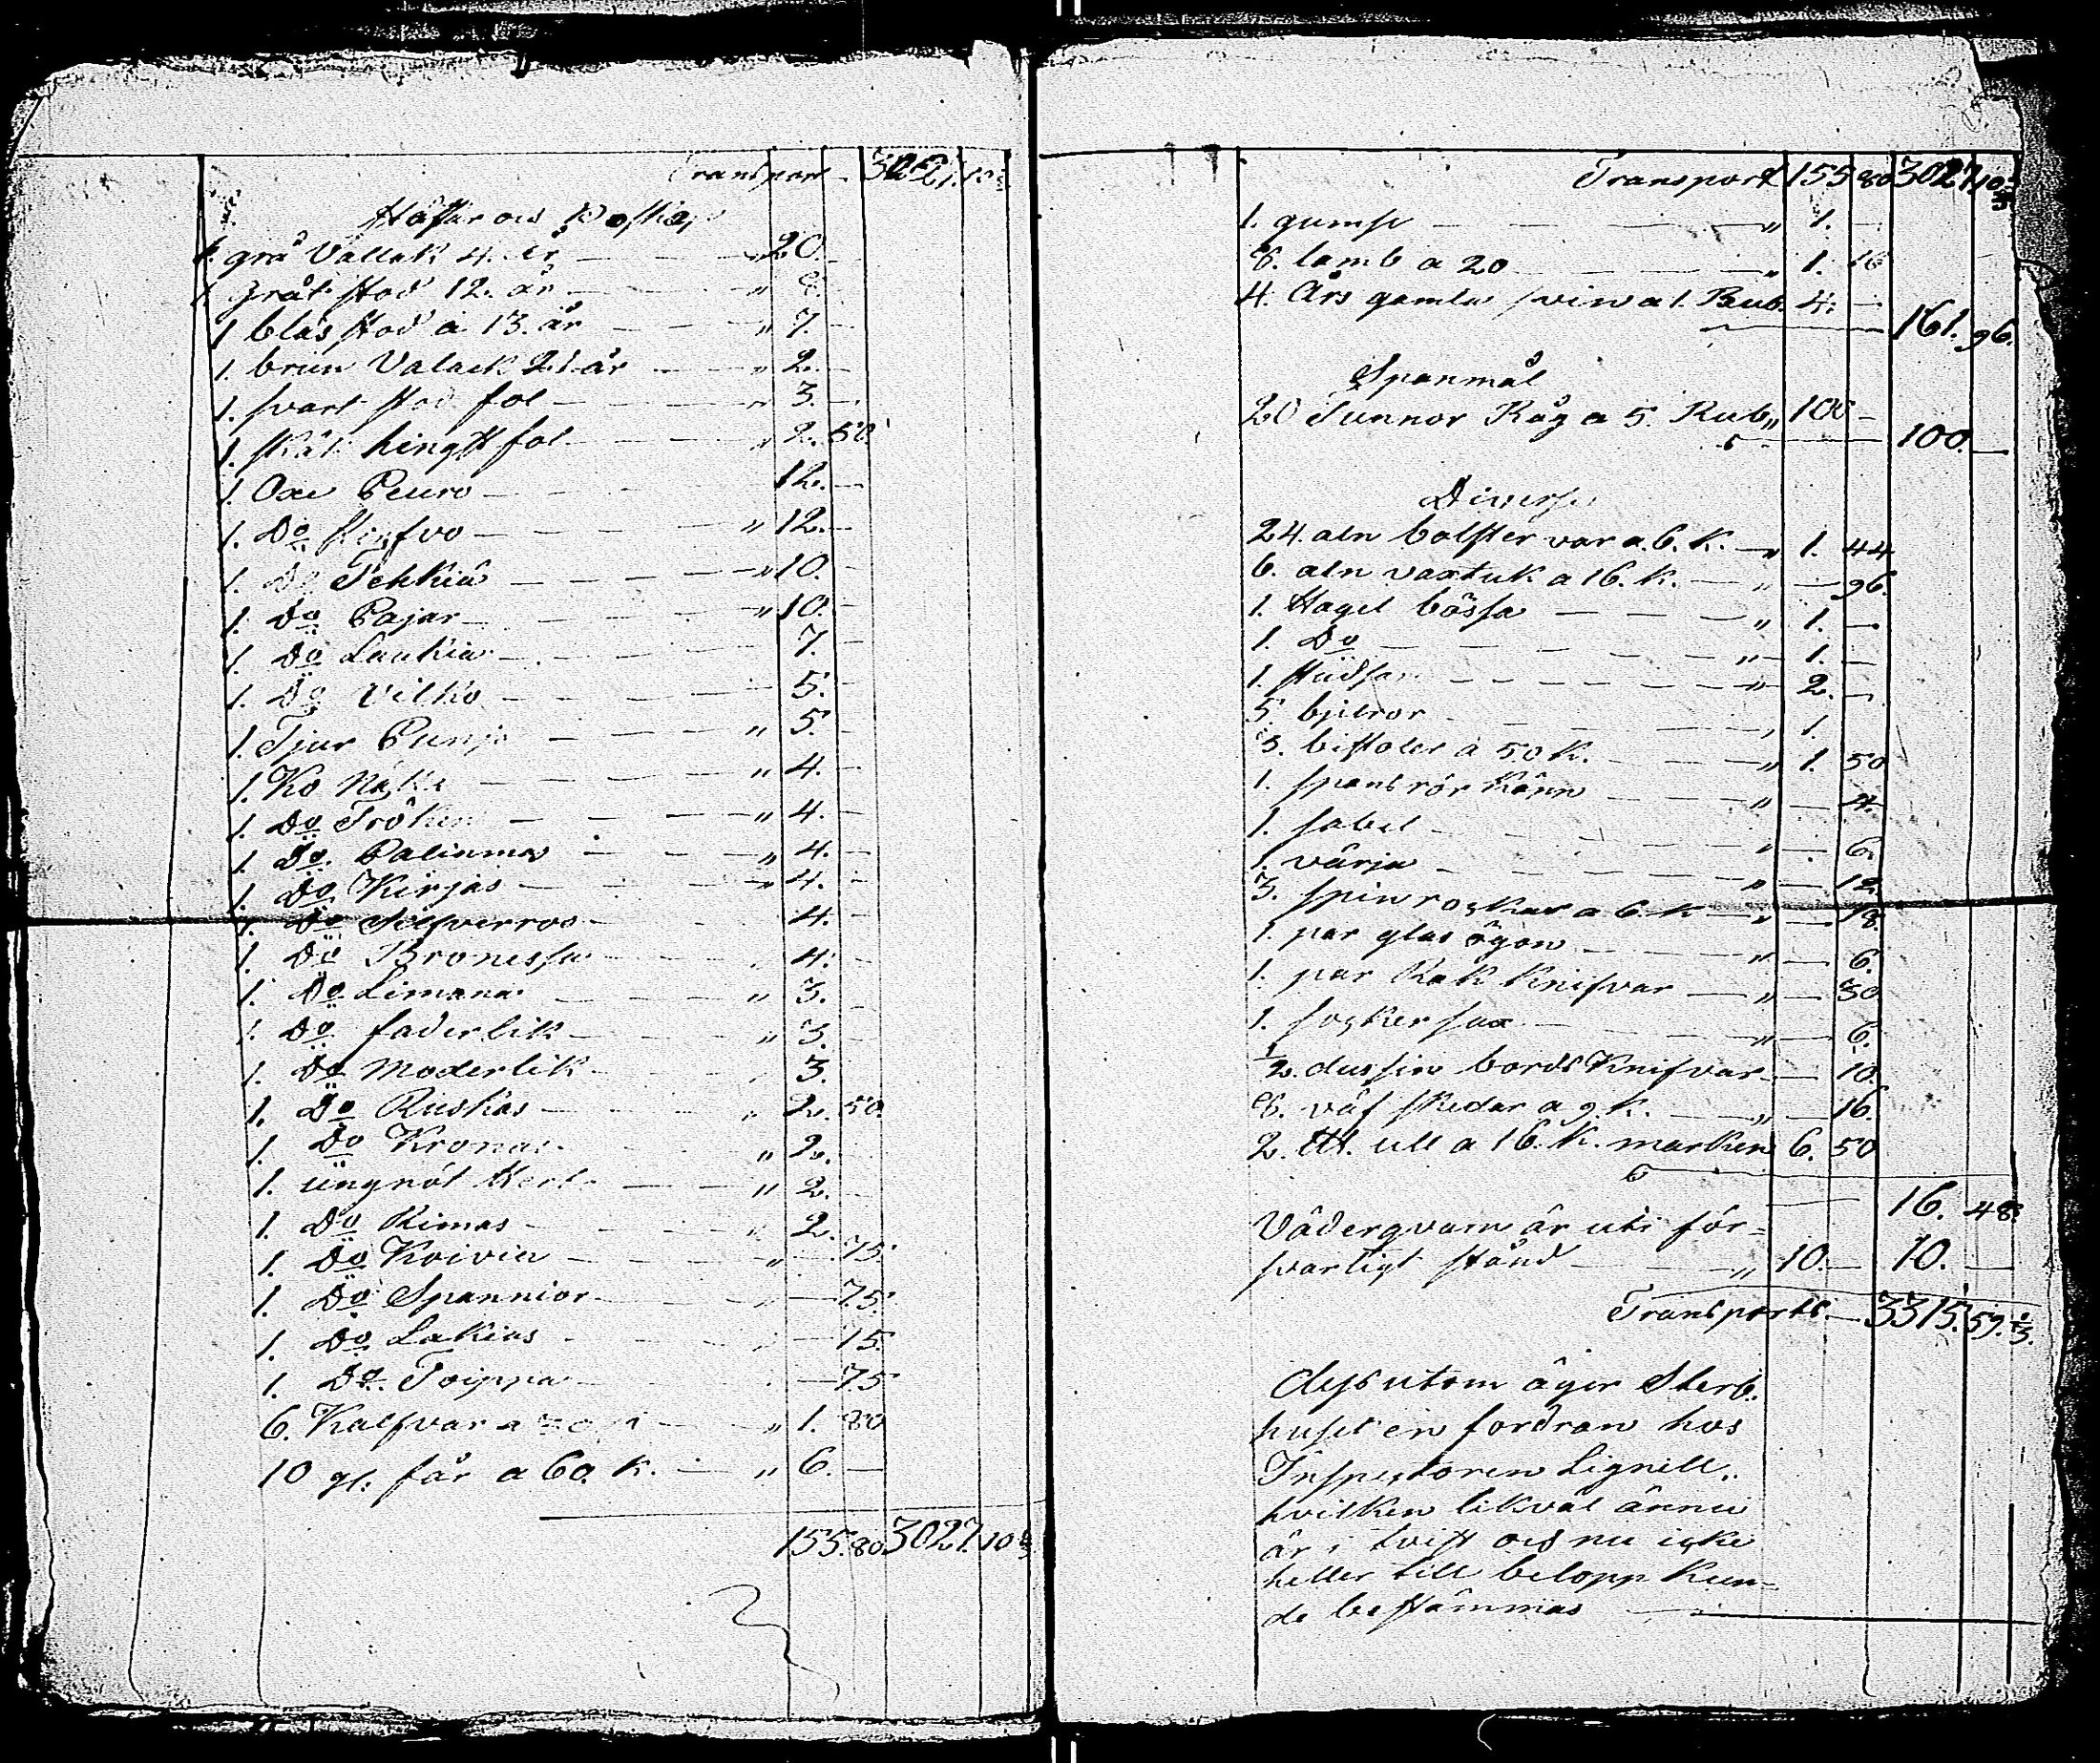 Transport 3027. 10 2/3
Hästar och Boskap
1. grå Vallak 4. år 20. —
1. grått stod 12. år „ 8.
1 blås stod a 13. år „ 7. —
1. brun Valack 21 år „ 2. —
1. svart stod fol „ 3. —
1. fol „ 2. 50.
1. Oxe Peuro 12. —
1. Do „ 12. —
1. Do Tehkiä „ 10. —
1. Do Pajar „ 10. —
1. Do Laukia 7. —
1. Do Vilko 5. —
1. Tjur „ 5. —
1. Ko „ 4. —
1. Do „ 4. —
1. Do Palinma „ 4. —
1. Do Kirjas „ 4. —
1. Do Selfverros 4. —
1. Do Bronessa 4. —
1. Do Limana „ 3.
1. Do faderlik „ 3.
1. Do Moderlik 3.
1. Do Ruskas „ 2. 50.
1. Do „ 2.
1. ungnöt „ 2. —
1. Do Kimas „ 2.
1. Do Koivia „ — 75.
1. Do Spannior „ — 75.
1. Do Lakias — 75.
1. Do Toippa — 75
6. Kalfvar a 30 K „ 1. 80
10 gl. får a 60. K. „ 6. —
155. 80 3027. 10 2/3
Transport 155 80 3027 10 2/3
1. gumse „ 1. —
8. lamb a 20 „ 1. 16
4. Års gamla svin a 1. Rub. 4. —
161. 96.
Spanmål
20 Tunnor Råg a 5. Rub „ 100 —
100. —
Diverse
24. aln bolster var a. 6. K. „ 1. 44
6. aln vaxtuk a 16. K. „ — 96.
1. Hagel bössa „ 1. —
1. Do „ 1. —
1. studsare „ 2. —
5. bjelror „ 1.
3. bistoler a 50 K. „ 1. 50
1. spansrör Käpp „ — 4.
1. sabel „ — 6.
1. värja „ — 12.
3. spinrockar a 6. K „ — 18.
1. par glas ögon „ — 6.
1. par Rak Knifvar „ — 30
1. socker sax „ — 6.
1/2. dussin bords Knifvar — 10.
8. väf skedar a 2. K. „ — 16.
2. ull a 16. K. marken 6. 50
16. 48.
Väderqvarn är uti för=
svarligt stånd „ 10. — 10. —
Transport. 3315. 59. 1/3.
dessutom äger Sterb=
huset en fordran hos
Inspectoren Lignell,
hvilken likväl ännu
är i tvist och nu icke
heller till belopp kun=
de bestämmas —